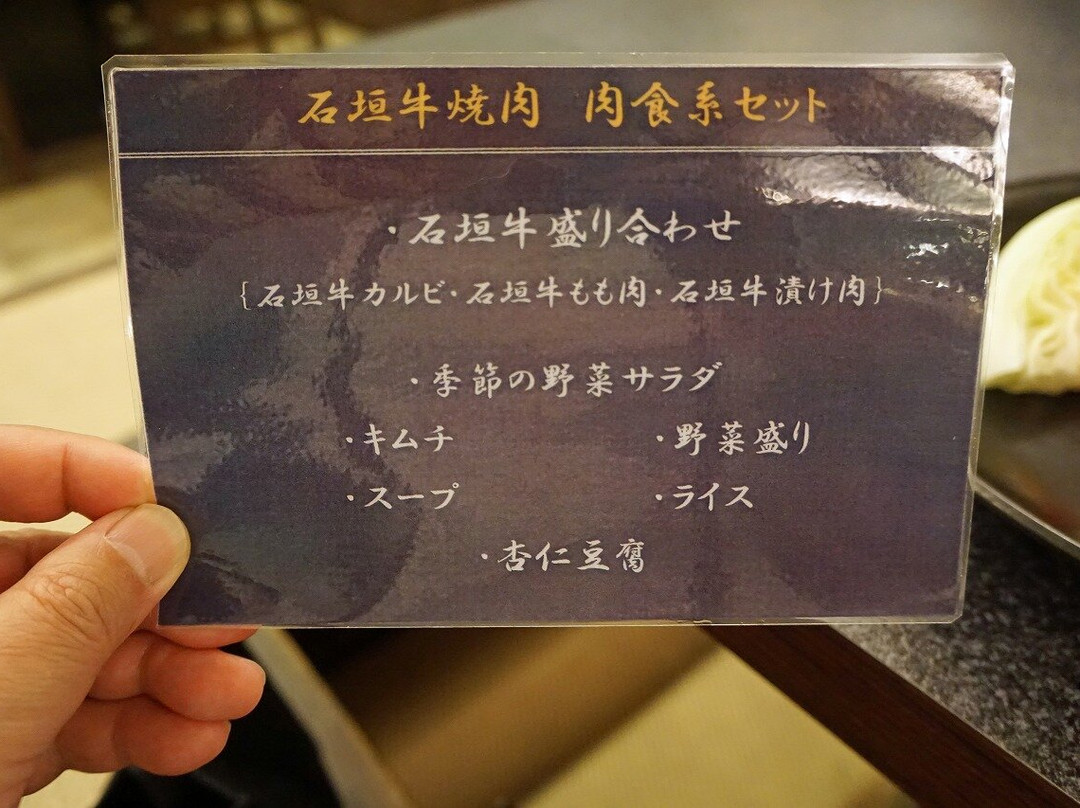 石垣牛焼肉　肉食系セット
・石垣牛盛り合わせ
{石垣牛カルビ・石垣牛もも肉・石垣牛漬け肉}
・季節の野菜サラダ
・キムチ　・野菜盛り
・スープ　・ライス
・杏仁豆腐